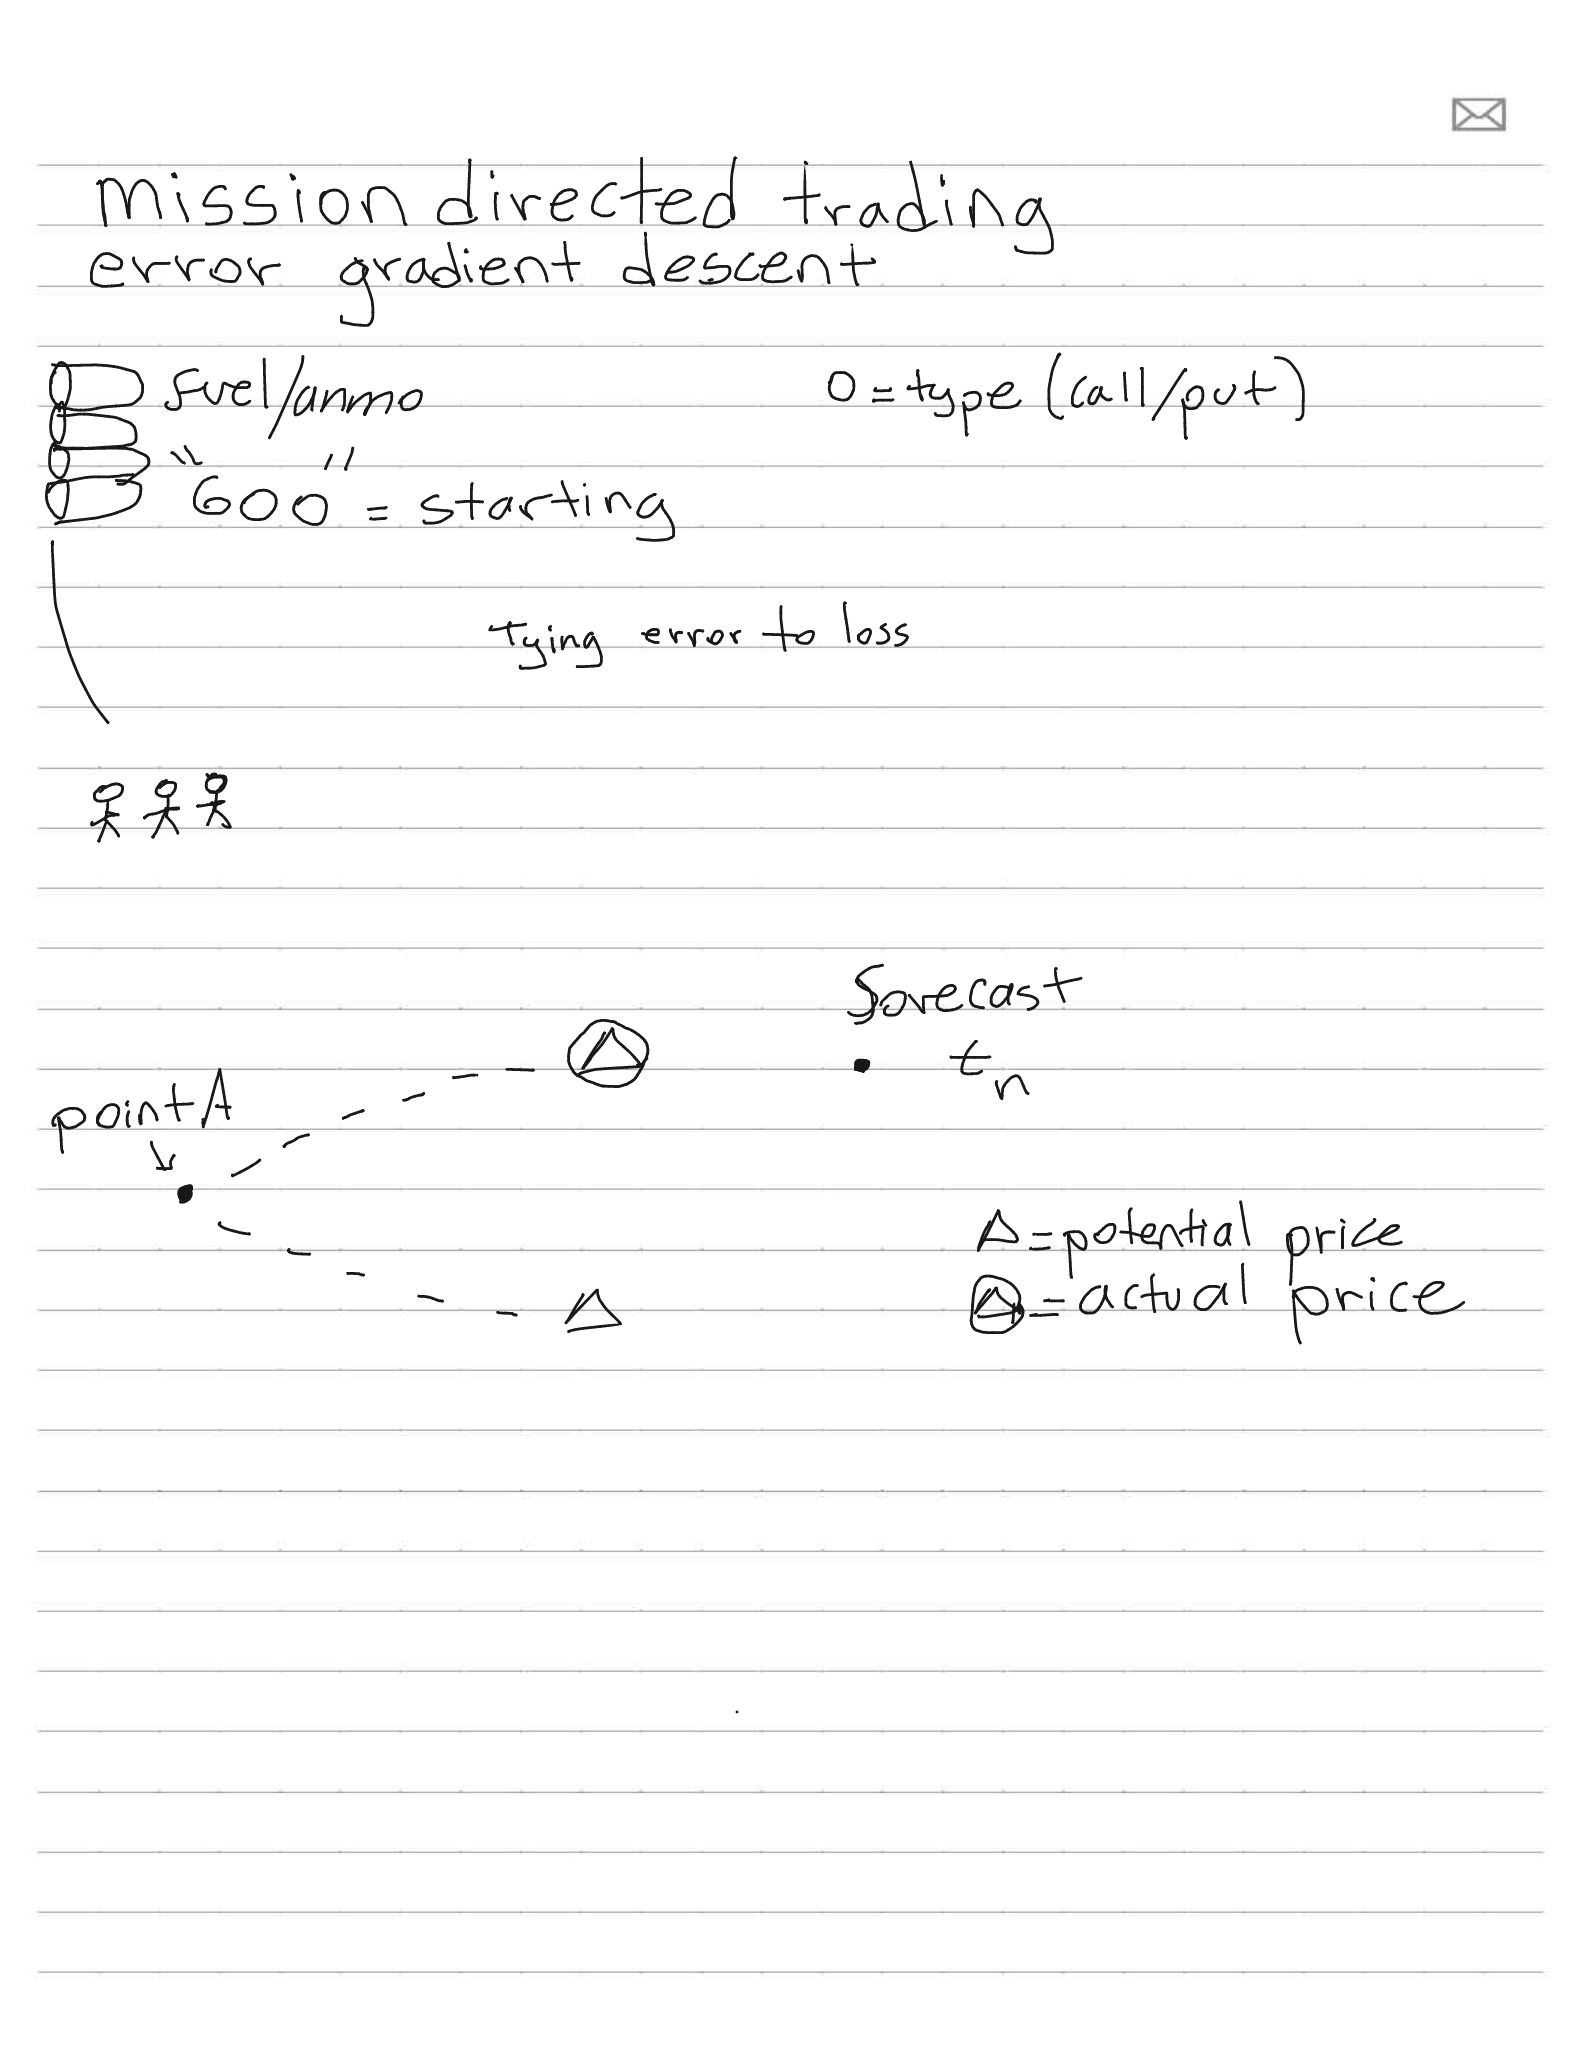 mission directed trading
error gradient descent
fuel/anmo
O = type (call/put)
"600" = starting
Tying error to loss
forecast
• tn
point A
△ = potential price
△ = actual price